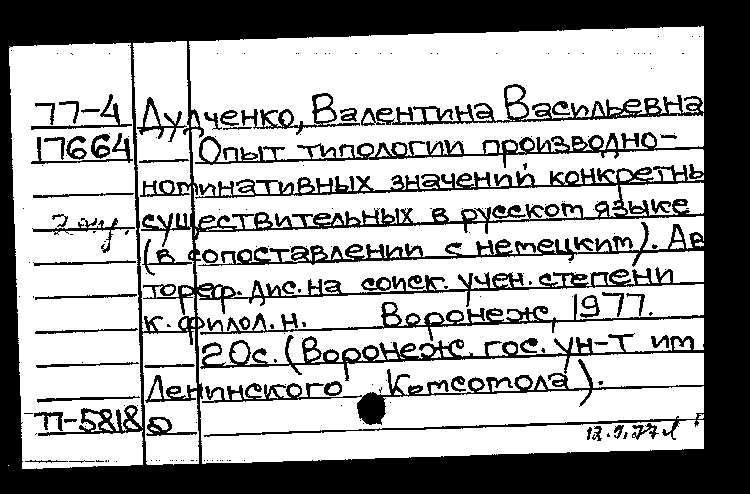 77-4 Дудченко, Валентина Васильевна
17664 Опыт типологии производно-
номинативных значений конкретнь
2 существительных в русском языке
(в сопоставлении с немецким). Ав
тореф. дис. на соиск. учен. степени
к. филол. н. Воронеж, 1977.
20с. (Воронеж. гос. ун-т им.
Ленинского Комсомола).
П-5818